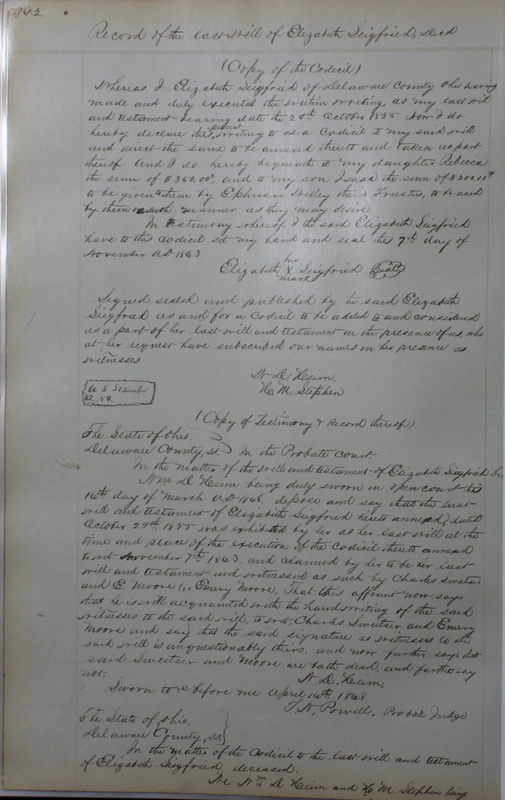 342
Record of the last will of Elizabeth Seigfried, Decd
(Copy of the Codicil)
Whereas I Elizabeth Seigfried of Delaware County Ohio having
made and duly executed the within writing, as my last will
and testament bearing date the 24th October 1855 Now I do
hereby declare this present writing to as a Codicil to my said will
and direct the same to be annexed thereto and taken as part
thereof And I do hereby bequeath to my daughter Rebecca
the sum of $350.00 and to my son Isaac the sum of $200.00
to be given them by Ephriam Willey their Trustee, to be used
by them in such manner as they may desire
In testimony whereof I the said Elizabeth Seigfried
have to this codicil set my hand and seal this 7th day of
November AD 1863
Elizabeth her X mark Seigfried (Seal)
Signed sealed and published by the said Elizabeth
Seigfried as and for a Codicil to be added to and considered
as a part of her last will and testament in the presence of us who
at her request have subscribed our names in her presence as
witnesses
N D Heim
H. M. Stephen
U S Stamp
$2.50.
(Copy of Testimony & Record thereof)
The State of Ohio
Delaware County, ss. } In the Probate Court
In the matter of the will and testament of Elizabeth Seigfried Dec.
Wm D Heim being duly sworn in open court this
14th day of March AD 1868, depose and say that the last
will and testament of Elizabeth Seigfried hereto annexed, dated
October 24th 1855 was exhibited by her as her last will at the
time and place of the execution of the codicil thereto annexed
to wit November 7th 1863, and claimed by her to be her last
will and testament and witnessed as such by Charles Sweetser
and E Moore or Emery Moore. That this affiant now says
that he is well acquainted with the hand writing of the said
witnesses to the said will, to wit: Charles Sweetser and Emery
Moore and say that the said signature as witnesses to the
said will is unquestionably theirs. and now further says that
said Sweetser and Moore are both dead, and further say
not.
N. D. Heim,
Sworn to &c before me April 14th 1868
T. W. Powell, Probate Judge
The State of Ohio.
Delaware County, ss. }
In the matter of the codicil to the last will and testament
of Elizabeth Seigfried deceased.
We Wm D Heim and H. M. Stephen being